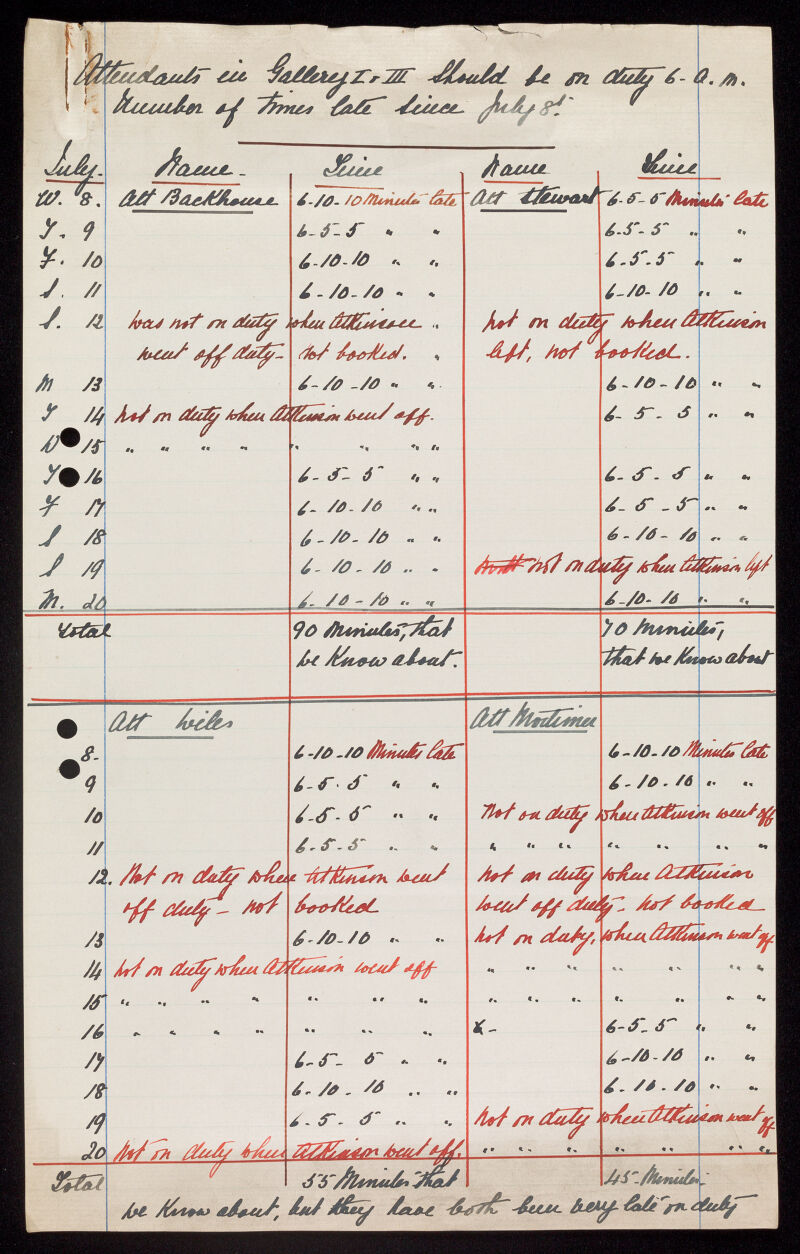 Attendants in Gallery I & III Should be on duty 6- a.m.
Number of times late since July 8th
July- Name- Time Name Time
W. 8. Att Backhouse 6-10-10 Minutes late Att Stewart 6-5-5 Minutes late
T. 9 6-5-5 " " 6-5-5 " "
F. 10 6-10-10 " " 6-5-5 " "
S. 11 6-10-10 " " 6-10-10 " "
S. 12 was not on duty when Atkinson " not on duty when Atkinson
went off duty- not booked. " left, not booked.
M 13 6-10-10 " " 6-10-10 " "
T 14 not on duty when Atkinson went off. 6-5-5 " "
W 15 " " " " " " " "
T 16 6-5-5 " " 6-5-5 " "
F 17 6-10-10 " " 6-5-5 " "
S 18 6-10-10 " " 6-10-10 " "
S 19 6-10-10 " " not on duty when Atkinson left
M. 20 6-10-10 " " 6-10-10 " "
Total 90 Minutes, that 70 Minutes,
we Know about. that we Know about
Att Wiles Att Mortimer
8- 6-10-10 Minutes late 6-10-10 Minutes late
9 6-5-5 " " 6-10-10 " "
10 6-5-5 " " Not on duty when Atkinson went off
11 6-5-5 " " " " " " " " "
12. Not on duty when Atkinson went not on duty when Atkinson
off duty- not booked went off duty- not booked
13 6-10-10 " " not on duty, when Atkinson went off
14 not on duty when Atkinson went off " " " " " " "
15 " " " " " " " " " " " " " " "
16 " " " " " " " 6- 6-5-5 " "
17 6-5-5 " " 6-10-10 " "
18 6-10-10 " " 6-10-10 " "
19 6-5-5 " " not on duty when Atkinson went off
20 Not on duty when Atkinson went off. " " " " " " " "
Total 55 Minutes that 45-Minutes-
we Know about, but they have both been very late on duty